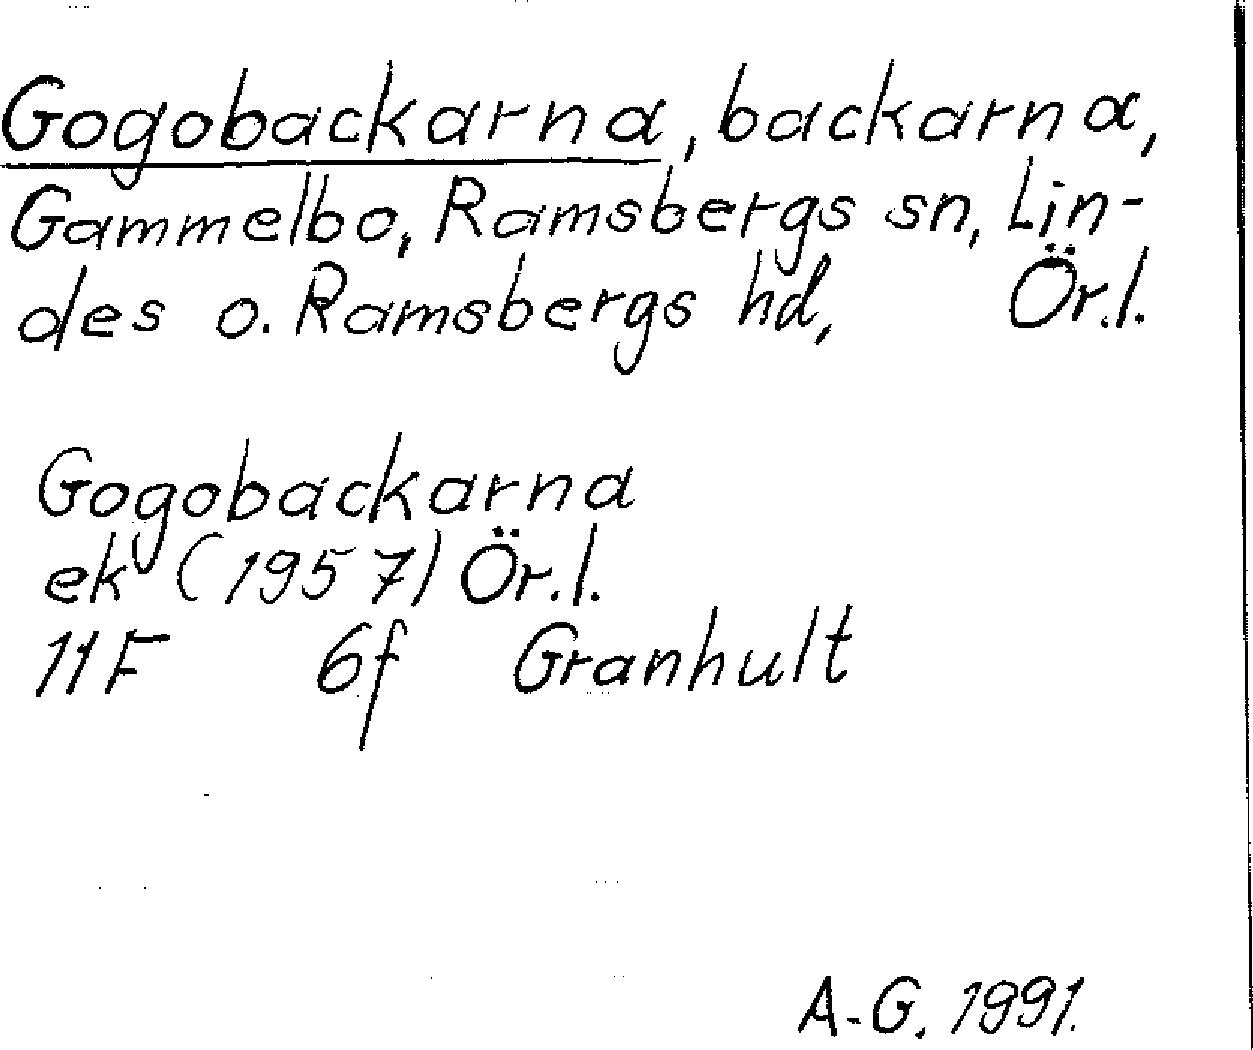 Gogobackarna, backarna,
Gammelbo, Ramsbergs sn, Lin-
des o. Ramsbergs hd, Ör.l.
Gogobackarna
ek (1957) Ör.l.
11F 6f Granhult
A-G. 1991.